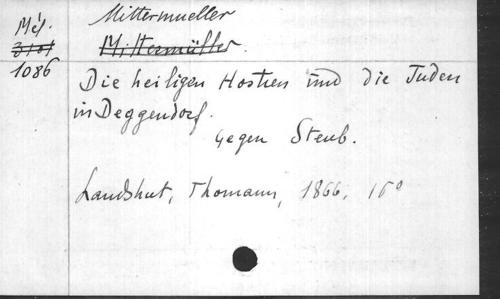 Mél.
3101
1086
Mittermueller
Mittermüller.
Die heiligen Hostien und die Juden
in Deggendorf.
Gegen Steub.
Landshut, Thomann, 1866, 16°